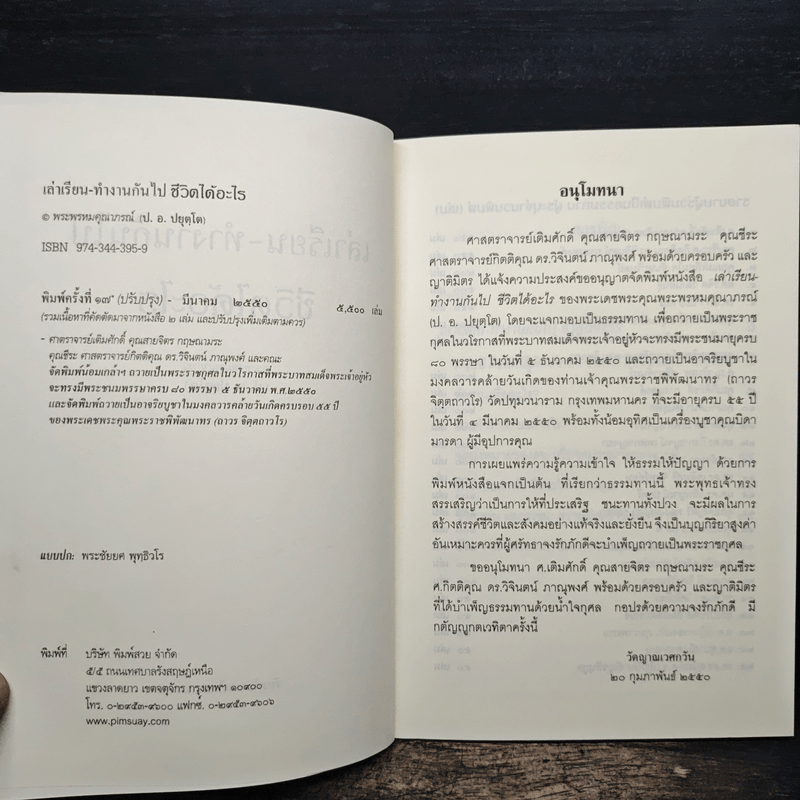 เล่าเรียน-ทำงานกันไป ชีวิตได้อะไร
© พระพรหมคุณาภรณ์ (ป. อ. ปยุตฺโต)
ISBN 974-344-395-9
พิมพ์ครั้งที่ ๑๗* (ปรับปรุง) - มีนาคม ๒๕๕๐ ๕,๕๐๐ เล่ม
(รวมเนื้อหาที่คัดตัดมาจากหนังสือ ๒ เล่ม และปรับปรุงเพิ่มเติมตามควร)
- ศาตราจารย์เติมศักดิ์ คุณสายจิตร กฤษณามระ
คุณธีระ ศาสตราจารย์กิตติคุณ ดร.วิจินตน์ ภาณุพงศ์ และคณะ
จัดพิมพ์น้อมเกล้าฯ ถวายเป็นพระราชกุศลในวโรกาสที่พระบาทสมเด็จพระเจ้าอยู่หัว
จะทรงมีพระชนมพรรษาครบ ๘๐ พรรษา ๕ ธันวาคม พ.ศ.๒๕๕๐
และจัดพิมพ์ถวายเป็นอาจริยบูชาในมงคลวารคล้ายวันเกิดครบรอบ ๕๕ ปี
ของพระเดชพระคุณพระราชพิพัฒนาทร (ถาวร จิตฺตถาวโร)
แบบปก: พระชัยยศ พุทฺธิวโร
พิมพ์ที่ บริษัท พิมพ์สวย จำกัด
๕/๕ ถนนเทศบาลรังสฤษฎ์เหนือ
แขวงลาดยาว เขตจตุจักร กรุงเทพฯ ๑๐๙๐๐
โทร. ๐-๒๙๕๓-๙๖๐๐ แฟกซ์. ๐-๒๙๕๓-๙๖๐๖
www.pimsuay.com
อนุโมทนา
ศาสตราจารย์เติมศักดิ์ คุณสายจิตร กฤษณามระ คุณธีระ
ศาสตราจารย์กิตติคุณ ดร.วิจินตน์ ภาณุพงศ์ พร้อมด้วยครอบครัว และ
ญาติมิตร ได้แจ้งความประสงค์ขออนุญาตจัดพิมพ์หนังสือ เล่าเรียน-
ทำงานกันไป ชีวิตได้อะไร ของพระเดชพระคุณพระพรหมคุณาภรณ์
(ป. อ. ปยุตฺโต) โดยจะแจกมอบเป็นธรรมทาน เพื่อถวายเป็นพระราช
กุศลในวโรกาสที่พระบาทสมเด็จพระเจ้าอยู่หัวจะทรงมีพระชนมายุครบ
๘๐ พรรษา ในวันที่ ๕ ธันวาคม ๒๕๕๐ และถวายเป็นอาจริยบูชาใน
มงคลวารคล้ายวันเกิดของท่านเจ้าคุณพระราชพิพัฒนาทร (ถาวร
จิตฺตถาวโร) วัดปทุมวนาราม กรุงเทพมหานคร ที่จะมีอายุครบ ๕๕ ปี
ในวันที่ ๔ มีนาคม ๒๕๕๐ พร้อมทั้งน้อมอุทิศเป็นเครื่องบูชาคุณบิดา
มารดา ผู้มีอุปการคุณ
การเผยแพร่ความรู้ความเข้าใจ ให้ธรรมให้ปัญญา ด้วยการ
พิมพ์หนังสือแจกเป็นต้น ที่เรียกว่าธรรมทานนี้ พระพุทธเจ้าทรง
สรรเสริญว่าเป็นการให้ที่ประเสริฐ ชนะทานทั้งปวง จะมีผลในการ
สร้างสรรค์ชีวิตและสังคมอย่างแท้จริงและยั่งยืน จึงเป็นบุญกิริยาสูงค่า
อันเหมาะควรที่ผู้ศรัทธาจงรักภักดีจะบำเพ็ญถวายเป็นพระราชกุศล
ขออนุโมทนา ศ.เติมศักดิ์ คุณสายจิตร กฤษณามระ คุณธีระ
ศ.กิตติคุณ ดร.วิจินตน์ ภาณุพงศ์ พร้อมด้วยครอบครัว และญาติมิตร
ที่ได้บำเพ็ญธรรมทานด้วยน้ำใจกุศล กอปรด้วยความจงรักภักดี มี
กตัญญูกตเวทิตาครั้งนี้
วัดญาณเวศกวัน
๒๐ กุมภาพันธ์ ๒๕๕๐